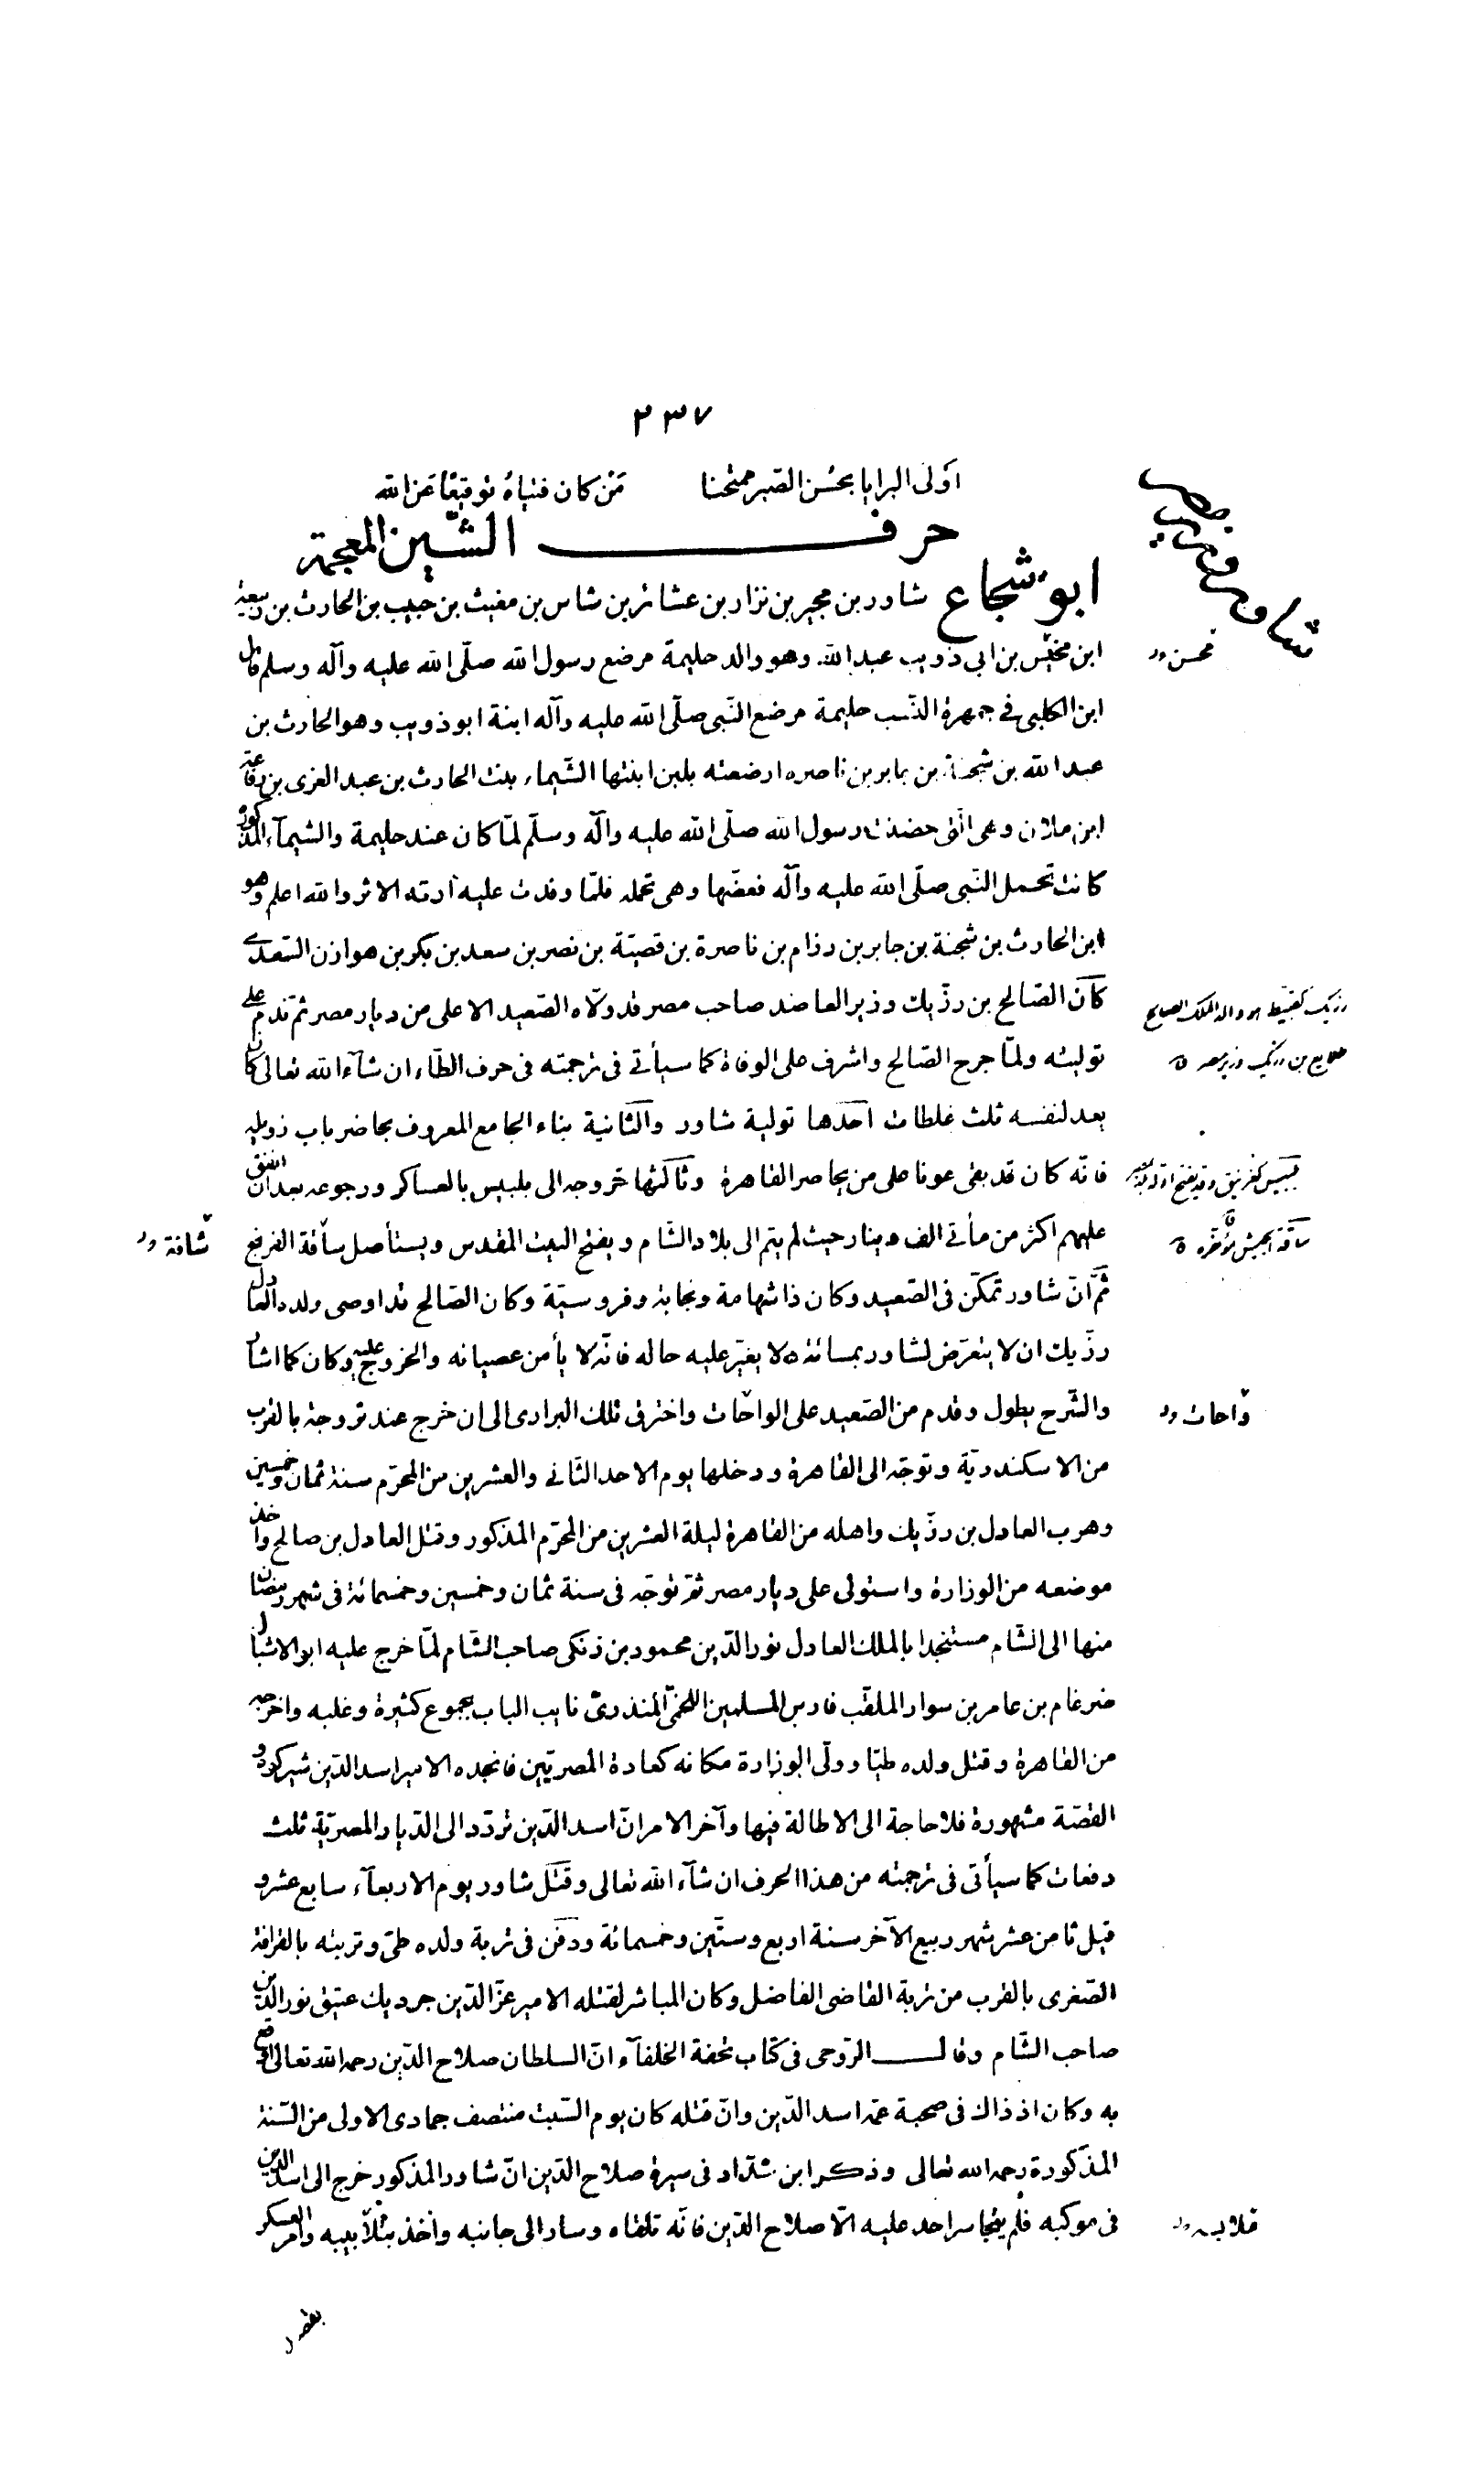 ٢٣٧
اولى البرايا بحسن الصبر ممتحنا من كان فتياه توقيعًا عن الله
حرف الشّين المعجمة
ابو شجاع شاور بن مجير بن نزار بن عشائر بن شاس بن مغيث بن حبيب بن الحارث بن ربيعة
ابن مخيس بن ابى ذويب عبدالله وهو والد حليمة مرضع رسول الله صلّى الله عليه وآله وسلم قال
ابن الكلبى فى جمهرة النّسب حليمة مرضع النّبى صلّى الله عليه وآله ابنة ابو ذويب وهو الحارث بن
عبد الله بن شجنة بن بن ناصره ارضعته بلبن ابنتها الشّيماء بنت الحارث بن عبد العزى بن رفاعة
ابن ملان وهى الّتى حضنت رسول الله صلّى الله عليه وآله وسلّم لمّا كان عند حليمة والشيمآء المذكورة
كانت تحمل النّبى صلّى الله عليه وآله فعضّها وهى تحمله فلمّا وفدت عليه ارته الاثر والله اعلم وهو
ابن الحارث بن شجنة بن جابر بن رزام بن ناصرة بن قصيّة بن نصر بن سعد بن بكر بن هوازن السّعدى
كان الصّالح بن رزّيك وزير العاضد صاحب مصر قد ولّاه الصّعيد الاعلى من ديار مصر ثمّ ندم على
توليته ولمّا جرح الصّالح واشرف على الوفاة كما سيأتى فى ترجمته فى حرف الطّاء ان شآء الله تعالى كان
يعد لنفسه ثلث غلطات احدها تولية شاور والثّانية بناء الجامع المعروف بحاضر باب زويله
فانّه كان قد بقى عونا على من يحاصر القاهرة وثالثها خروجه الى بلبيس بالعساكر ورجوعه بعد ان انفق
عليهم اكثر من مأتى الف دينار حيث لم يتم الى بلاد الشّام ويفتح البيت المقدس ويستأصل سأفة الفرنج
ثمّ انّ شاور تمكّن فى الصّعيد وكان ذا شهامة ونجابة وفروسيّة وكان الصّالح قد اوصى ولده العادل
رزّيك ان لا يتعرّض لشاور بمسائة ولا يغيّر عليه حاله فانّه لا يأمن عصيانه والخروج عليه وكان كما اشار
والشّرح يطول وقدم من الصّعيد على الواحات واخترق تلك البرارى الى ان خرج عند تروجة بالقرب
من الاسكندريّة وتوجّه الى القاهرة ودخلها يوم الاحد الثّانى والعشرين من المحرّم سنة ثمان وخمسين
وهرب العادل بن رزّيك واهله من القاهرة ليلة العشرين من المحرّم المذكور وقتل العادل بن صالح واخذ
موضعه من الوزارة واستولى على ديار مصر ثمّ توجّه فى سنة ثمان وخمسين وخمسمائة فى شهر رمضان
منها الى الشّام مستنجدا بالملك العادل نور الدّين محمود بن زنكى صاحب الشّام لمّا خرج عليه ابو الاشبال
ضرغام بن عامر بن سوار الملقّب فارس المسلمين اللخمىّ المنذرىّ نايب الباب بجموع كثيرة وغلبه واخرجه
من القاهرة وقتل ولده طيّا وولّى الوزارة مكانه كعادة المصريّين فانجده الامير اسد الدّين شيركوه و
القصّة مشهورة فلا حاجة الى الاطالة فيها وآخر الامر انّ اسد الدّين تردّد الى الدّيار المصريّة ثلث
دفعات كما سيأتى فى ترجمته من هذا الحرف ان شآء الله تعالى وقتل شاور يوم الاربعآء سابع عشر و
قيل ثامن عشر شهر ربيع الآخر سنة اربع وستّين وخمسمائة ودفن فى تربة ولده طىّ وتربته بالقرافة
الصّغرى بالقرب من تربة القاضى الفاضل وكان المباشر لقتله الامير عزّ الدّين جرديك عتيق نور الدّين
صاحب الشّام وقال الرّوحى فى كتاب تحفة الخلفآء انّ السلطان صلاح الدّين رحمه الله تعالى اوقع
به وكان اذ ذاك فى صحبة عمّه اسد الدّين وانّ قتله كان يوم السّبت منتصف جمادى الاولى من السّنة
المذكورة رحمه الله تعالى وذكر ابن شدّاد فى سيرة صلاح الدّين انّ شاور المذكور خرج الى اسد الدّين
فى موكبه فلم يتجاسر احد عليه الّا صلاح الدّين فانّه تلقاه وسار الى جانبه واخذ بتلابيبه وامر العسكر
محسن
رزيك كقبيط هو والد الملك الصالح
طلايع بن رزيك وزير مصر
ساقة الجيش مؤخره
شافة
واحات
فلا